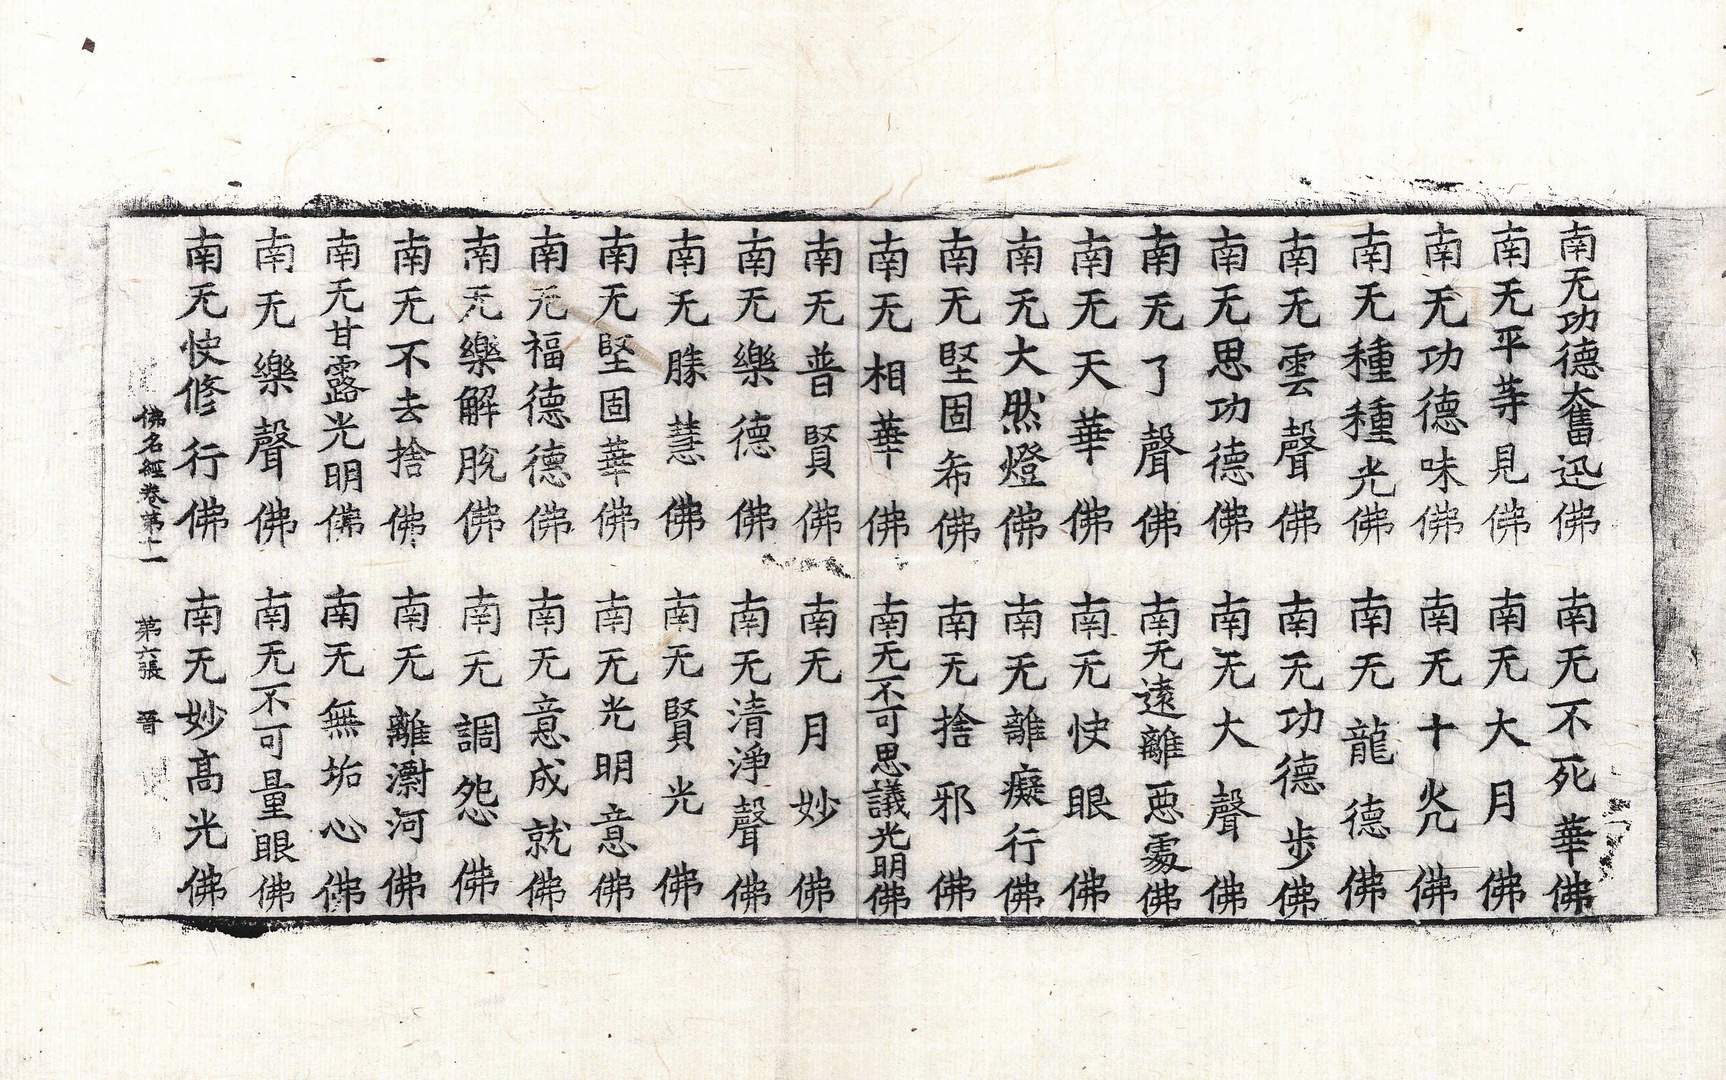 南无功德奮迅佛　南无不死華佛
南无平等見佛　南无大月佛
南无功德味佛　南无十光佛
南无種種光佛　南无龍德佛
南无雲聲佛　南无功德步佛
南无思功德佛　南无大聲佛
南无了聲佛　南无遠離惡處佛
南无天華佛　南无快眼佛
南无大然燈佛　南无離癡行佛
南无堅固希佛　南无捨邪佛
南无相華佛　南无不可思議光明佛
南无普賢佛　南无月妙佛
南无樂德佛　南无清淨聲佛
南无勝慧佛　南无賢光佛
南无堅固華佛　南无光明意佛
南无福德德佛　南无意成就佛
南无樂解脫佛　南无調怨佛
南无不去捨佛　南无離濧河佛
南无甘露光明佛　南无無垢心佛
南无樂聲佛　南无不可量眼佛
南无快修行佛　南无妙高光佛
佛名經卷第十一　第六張　晉